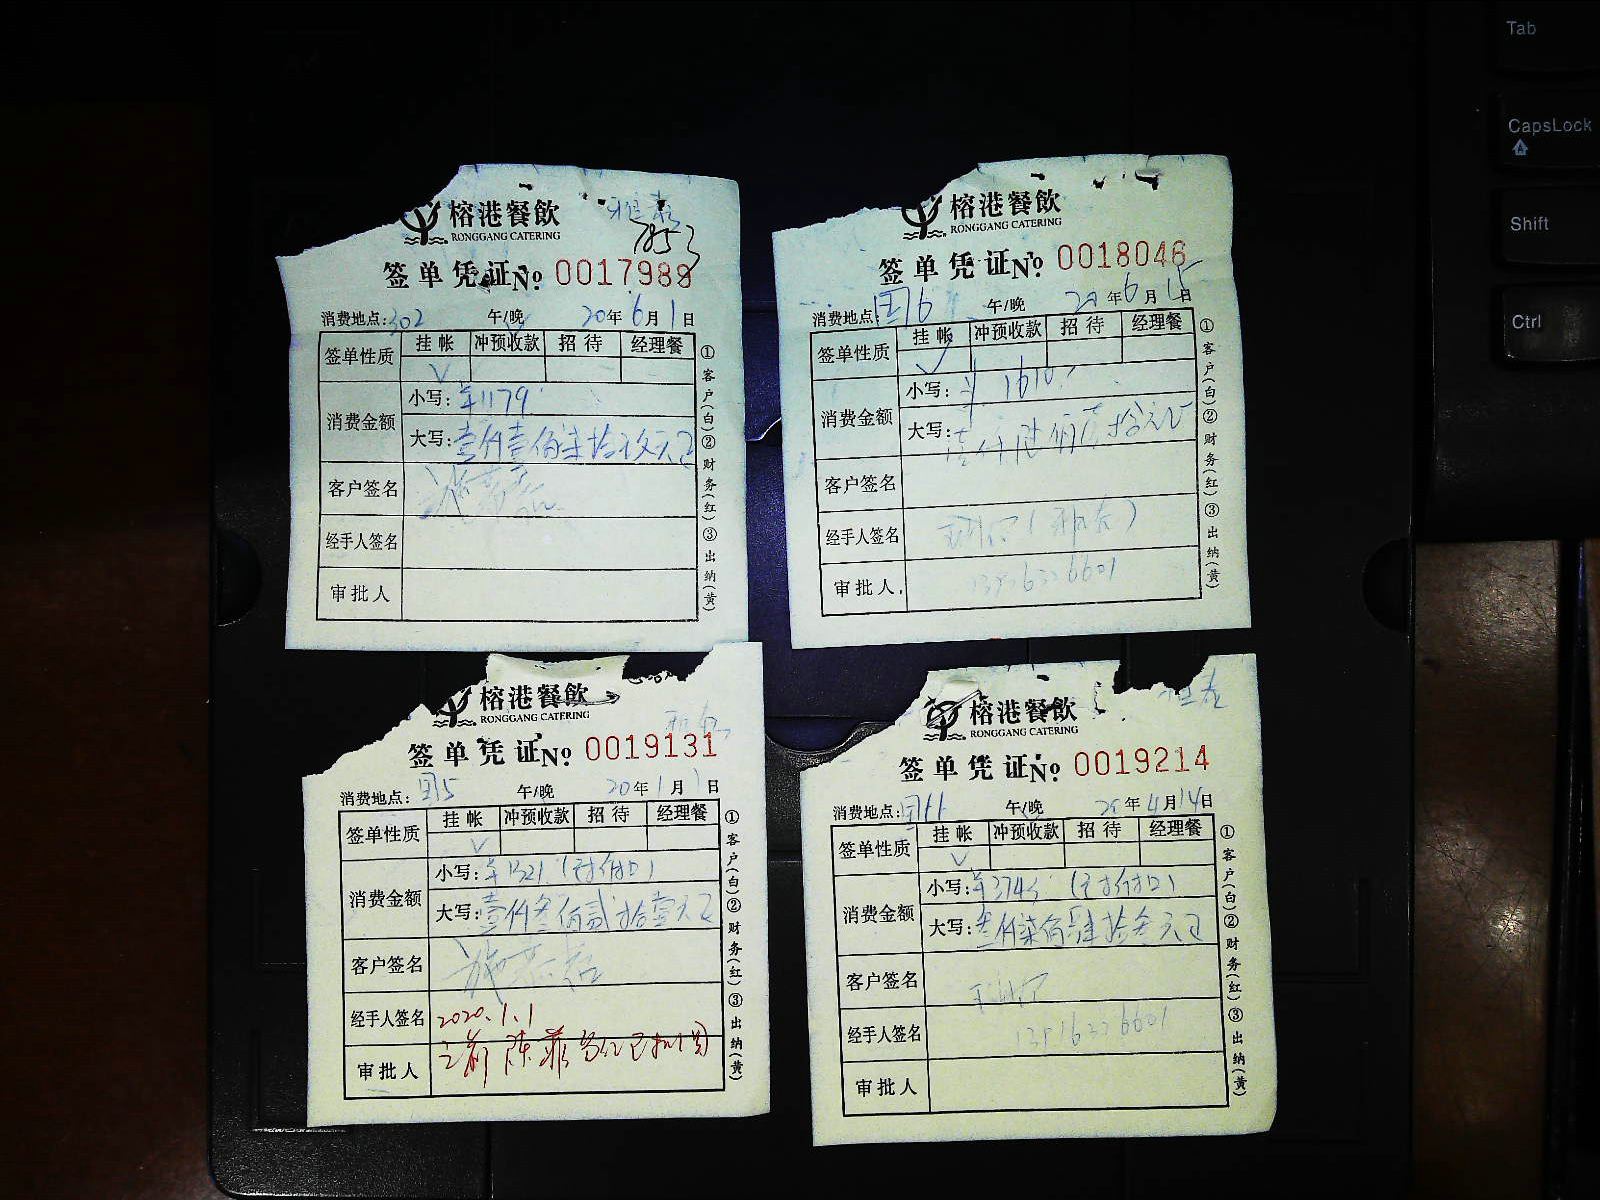 榕港餐飲
RONGGANG CATERING
7853
签单凭证No. 0017989
消费地点:302 午/晚 20年6月1日
签单性质 挂帐 冲预收款 招待 经理餐
消费金额 小写:¥1179
大写:壹仟壹佰柒拾玖元正
客户签名
经手人签名
审批人
①客户(白)②财务(红)③出纳(黄)
榕港餐飲
RONGGANG CATERING
签单凭证No. 0018046
消费地点:团6 午/晚 20年6月15日
签单性质 挂帐 冲预收款 招待 经理餐
消费金额 小写:¥1610.
大写:壹仟陆佰壹拾元正
客户签名
经手人签名
审批人
①客户(白)②财务(红)③出纳(黄)
榕港餐飲
RONGGANG CATERING
签单凭证No. 0019131
消费地点:团5 午/晚 20年1月1日
签单性质 挂帐 冲预收款 招待 经理餐
消费金额 小写:¥1321.
大写:壹仟叁佰贰拾壹元正
客户签名
经手人签名 2020.1.1
审批人 陈菲
①客户(白)②财务(红)③出纳(黄)
榕港餐飲
RONGGANG CATERING
签单凭证No. 0019214
消费地点:团11 午/晚 20年4月14日
签单性质 挂帐 冲预收款 招待 经理餐
消费金额 小写:¥3743
大写:叁仟柒佰肆拾叁元正
客户签名
经手人签名
审批人
①客户(白)②财务(红)③出纳(黄)
Tab
CapsLock
Shift
Ctrl